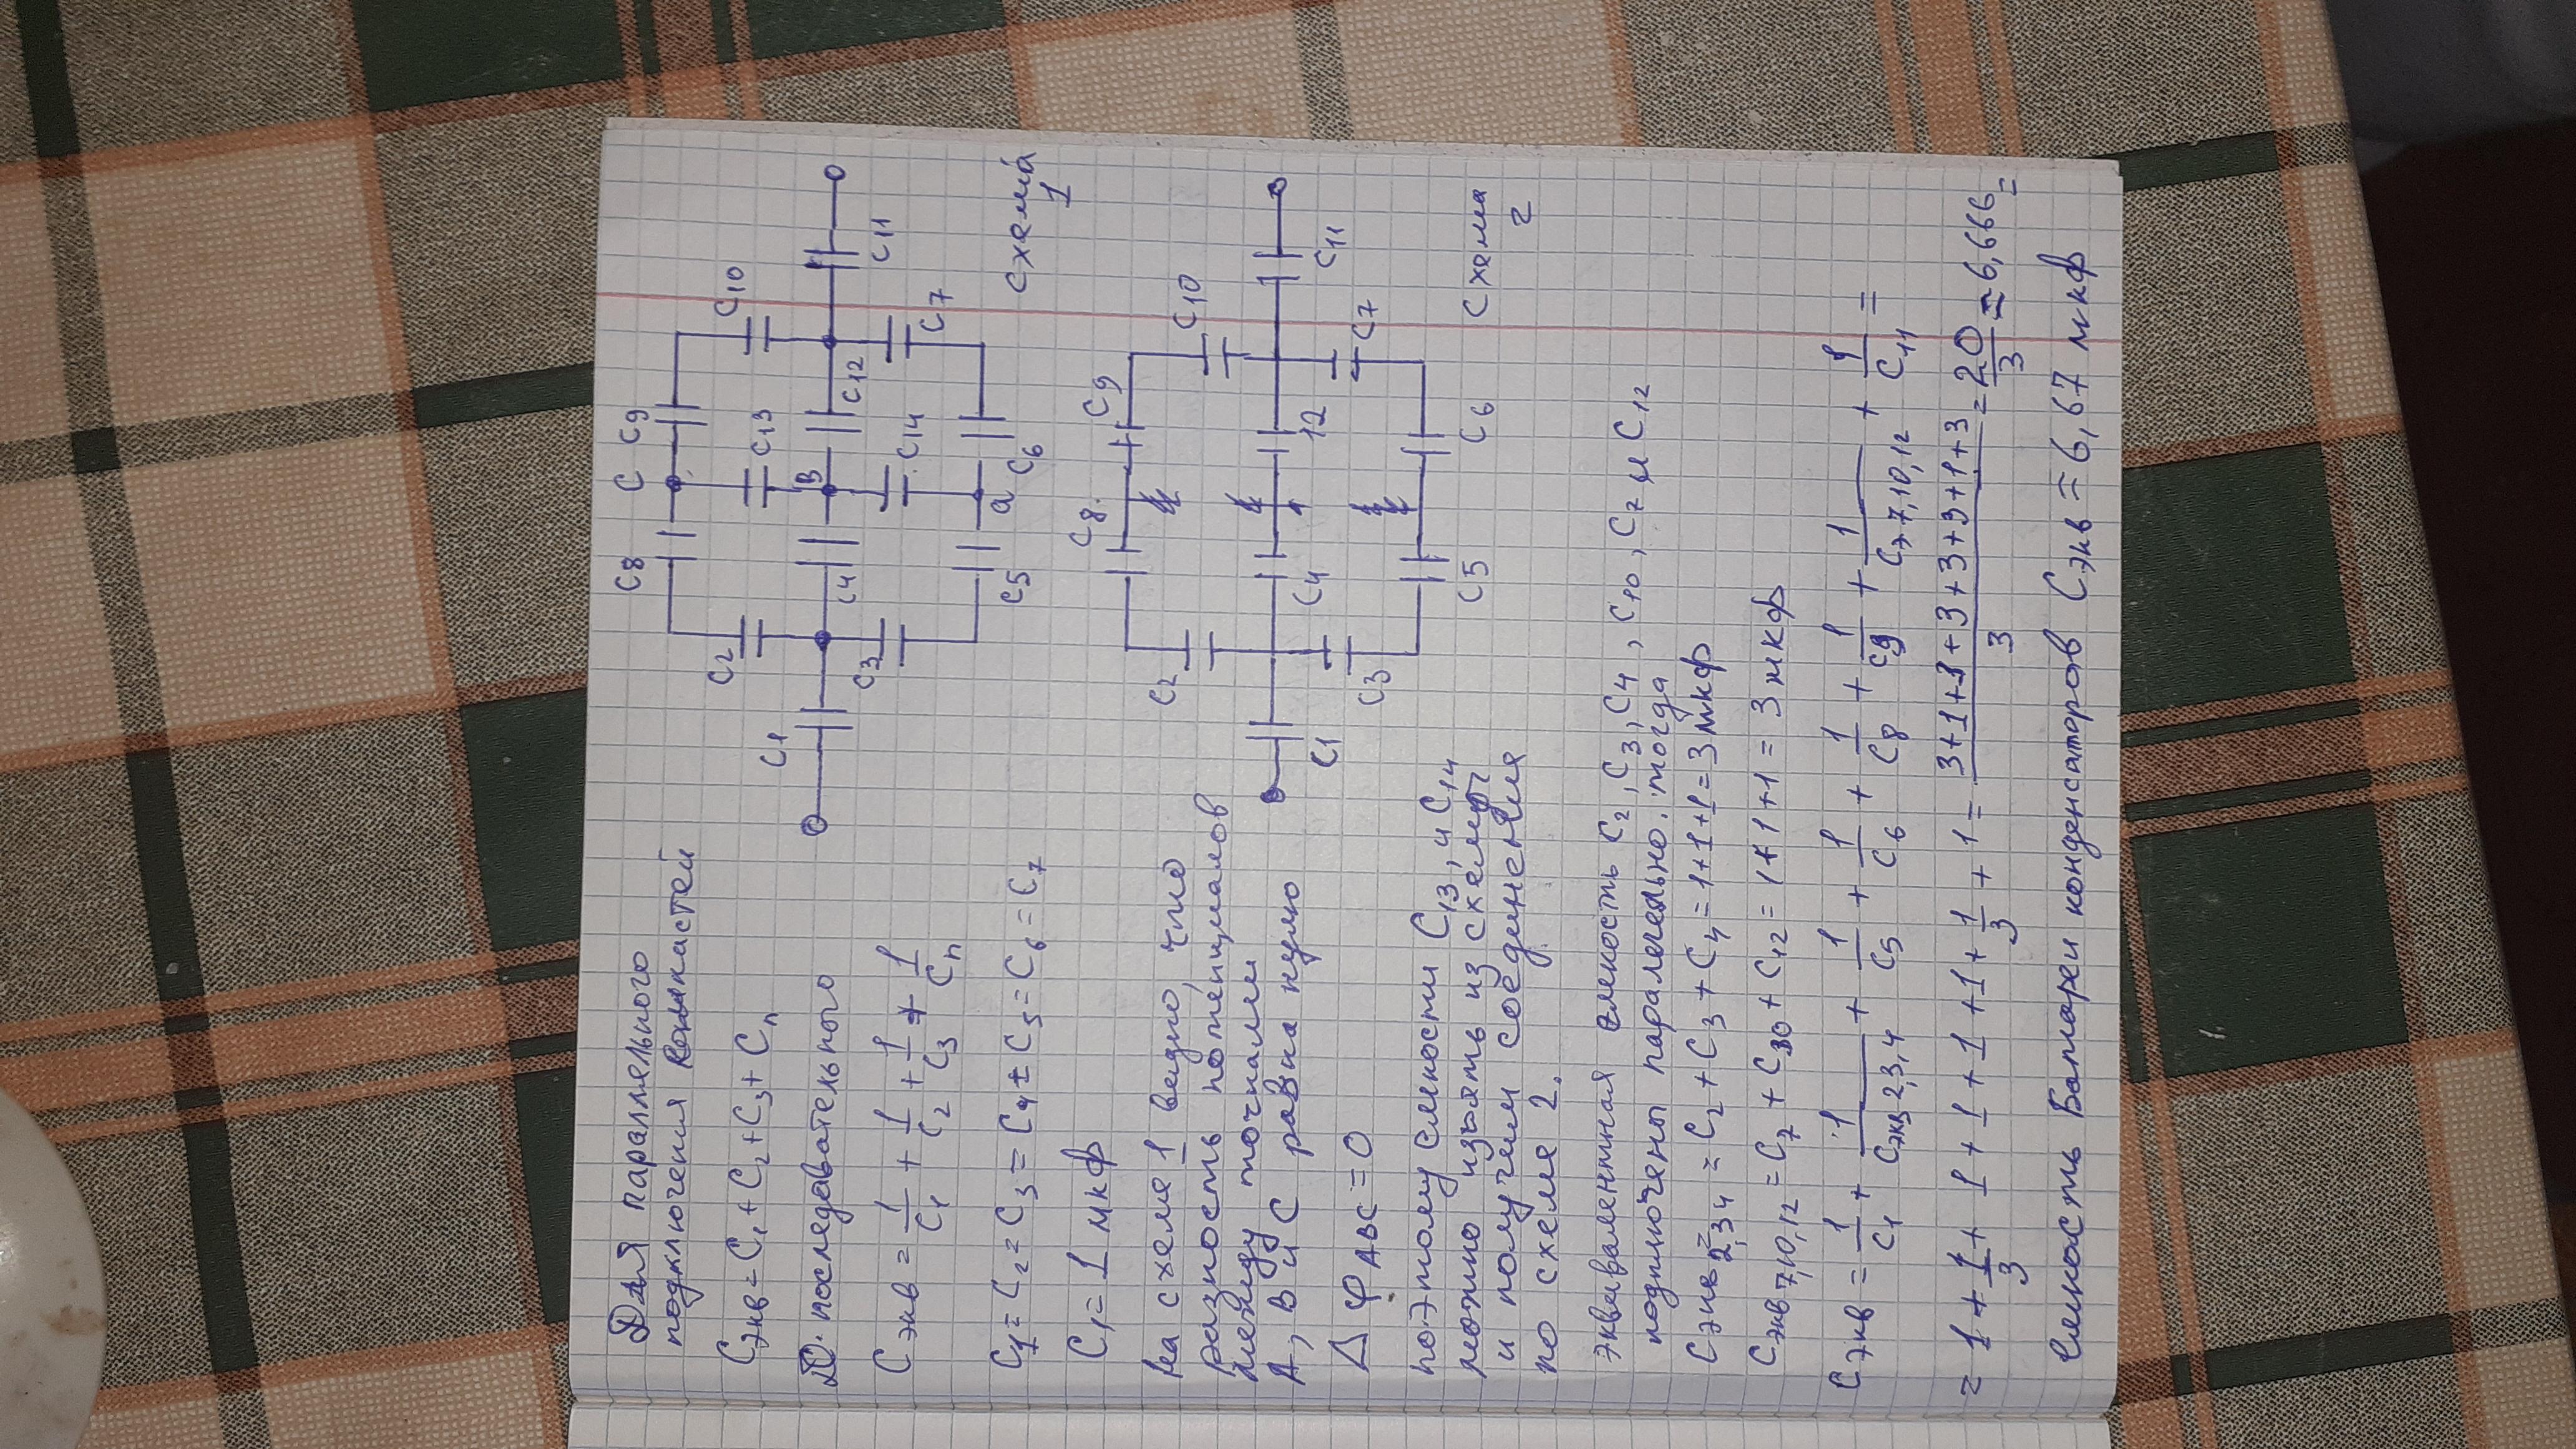 Для параллельного
подключения
Сэкв = C1 + C2 + C3 + Cn
последовательного
Сэкв = 1/C1 + 1/C2 + 1/C3 + 1/Cn
C1 = C2 = C3 = C4 = C5 = C6 = C7
C1 = 1 мкф
на схеме 1 видно, что
разность потенциалов
между точками
А, В и С равна нулю
Δ φ ABC = 0
поэтому емкости C13, и C14
можно изъять из схемы
и получем соединения
по схеме 2.
C1
C2
C8
C
C9
C10
C13
B
C4
C12
C11
C3
C14
C7
C5
a
C6
схема
1
C2
C8
C9
C10
C1
C4
12
C11
C3
C5
C6
C7
Схема
2
эквивалентная емкость C2, C3, C4, C10, C7 и C12
подключены паралельно. тогда
Сэкв 2,3 4 = C2 + C3 + C4 = 1+1+1 = 3 мкф
Сэкв 7,10,12 = C7 + C10 + C12 = 1+1+1 = 3 мкф
Сэкв = 1/C1 + 1/Сэкв 2,3,4 + 1/C5 + 1/C6 + 1/C8 + 1/C9 + 1/Сэ 7,10,12 + 1/C11 =
= 1 + 1/3 + 1 + 1 + 1 + 1 + 1/3 + 1 = 3+1+3+3+3+3+1+3/3 = 20/3 = 6,666 =
емкость Батареи конденсаторов Сэкв = 6,67 мкф